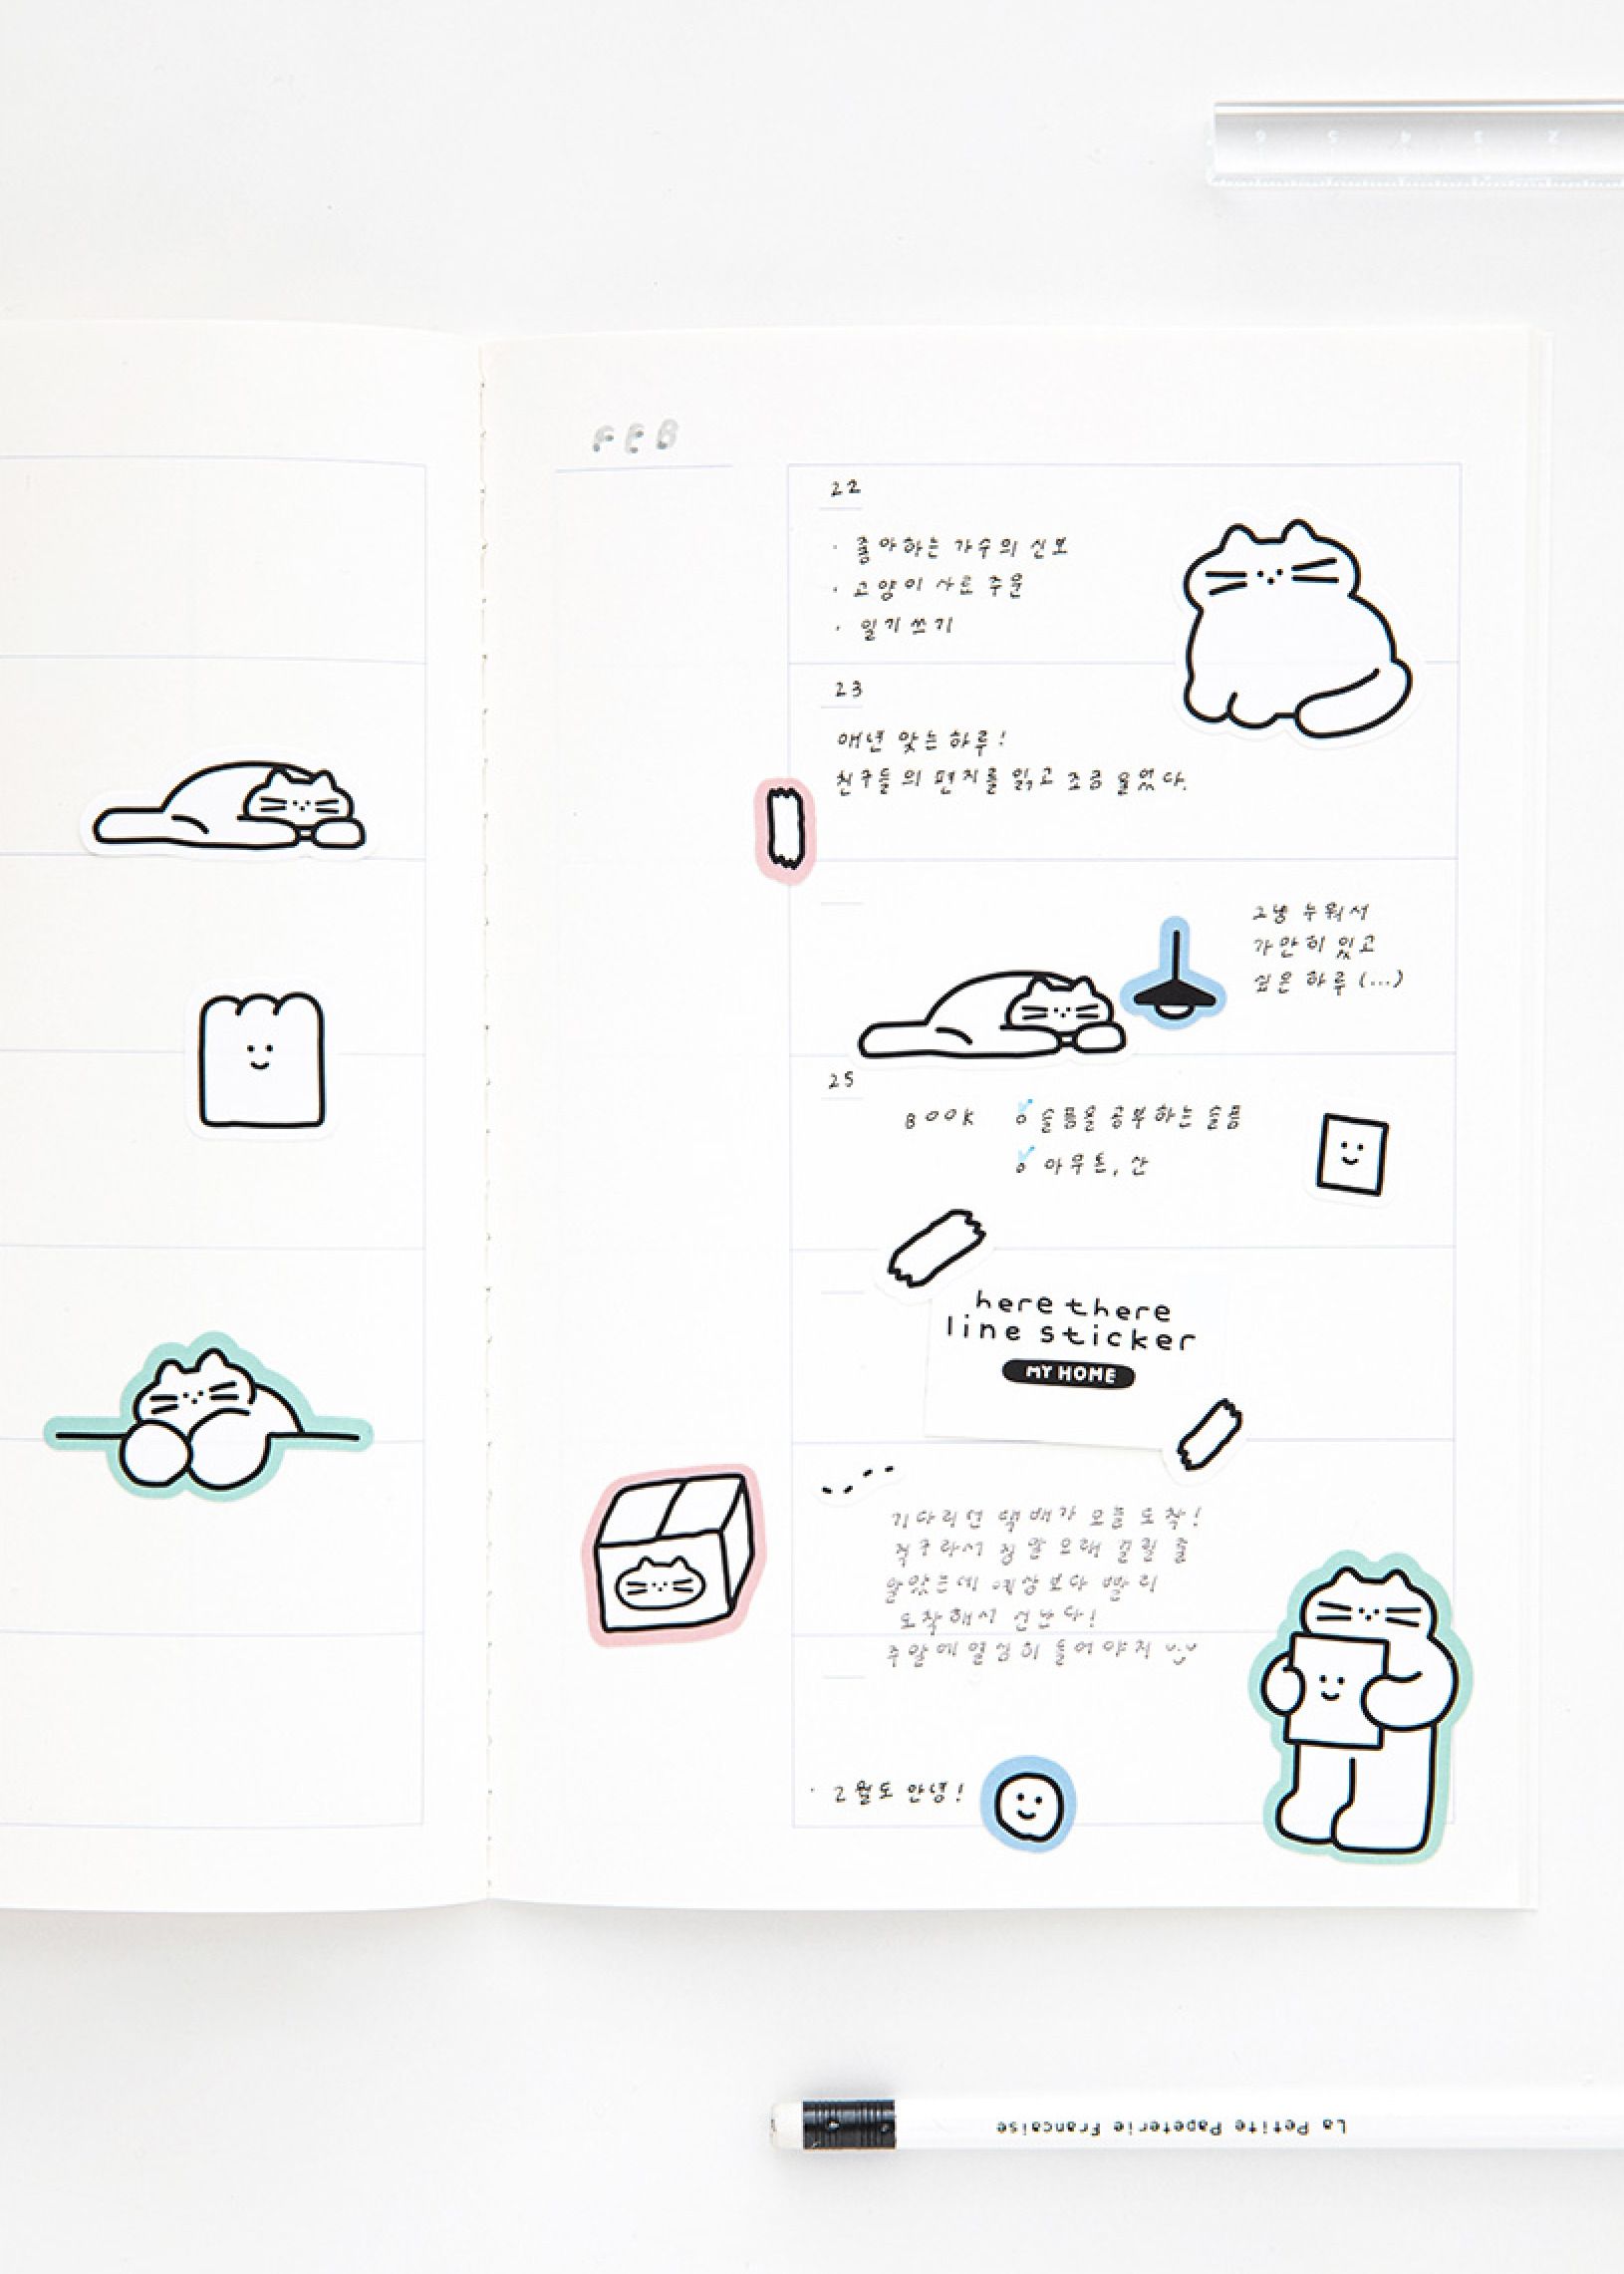 FEB
22
· 좋아하는 가수의 신보
· 고양이 사료 주문
· 일기쓰기
23
매년 맞는 하루!
친구들의 편지를 읽고 조금 울었다.
그냥 누워서
가만히 있고
싶은 하루 (...)
25
BOOK 슬픔을 공부하는 슬픔
아무튼, 산
here there
line sticker
MY HOME
기다리던 택배가 오늘 도착!
직구라서 정말 오래 걸릴 줄
알았는데 예상보다 빨리
도착해서 신난다!
주말에 열심히 들어야지
· 2월도 안녕!
La Petite Papeterie Francaise
6 5 4 3 2